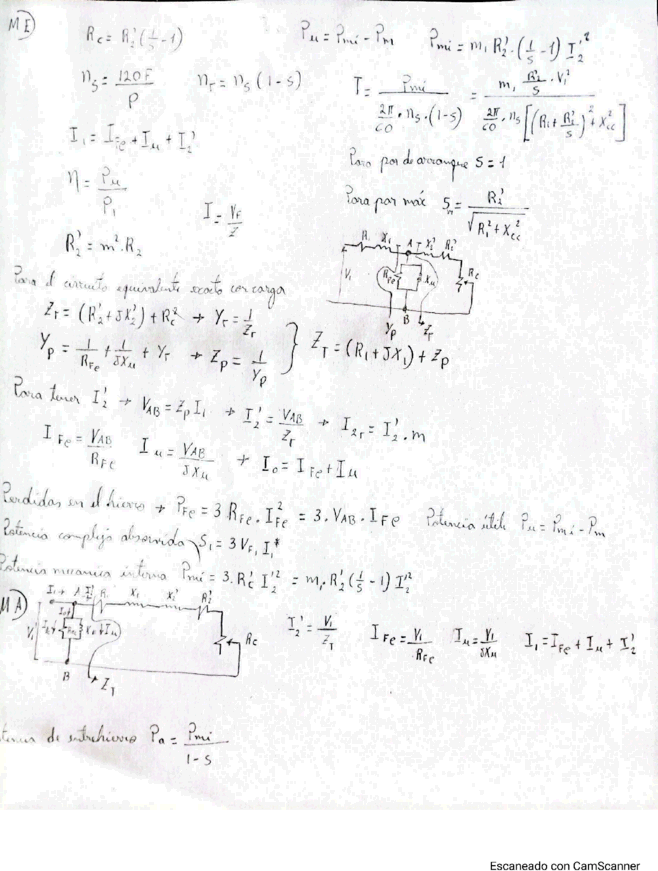 ME)
Rc = R2'(1/s - 1)
Pu = Pmi - Pm   Pmi = m1 R2' · (1/s - 1) I2'^2
ns = 120F/P   nr = ns (1-s)
T = Pmi / (2π/60 · ns · (1-s)) = m1 R2'/s · V1^2 / (2π/60 · ns [(R1 + R2'/s)^2 + Xcc^2])
I1 = IFe + Iμ + I2'
Para par de arranque S=1
η = Pu/P1   I = VF/Z
Para par máx Sm = R2' / √(R1^2 + Xcc^2)
R2' = m^2 · R2
R1 X1 A X2' R2' V1 RFe Xμ Rc B Yp Zr
Para el circuito equivalente exacto con carga
Zr = (R2' + JX2') + Rc' → Yr = 1/Zr
Yp = 1/RFe + 1/JXμ + Yr → Zp = 1/Yp } ZT = (R1 + JX1) + Zp
Para tener I2' → VAB = Zp I1 → I2' = VAB/Zr → I2r = I2' · m
IFe = VAB/RFe   Iμ = VAB/JXμ → Io = IFe + Iμ
Perdidas en el hierro → PFe = 3 RFe · IFe^2 = 3 · VAB · IFe   Potencia útil Pu = Pmi - Pm
Potencia compleja absorvida → S1 = 3 VF1 I1*
Potencia mecanica interna Pmi = 3 · Rc' I2'^2 = m1 · R2'(1/s - 1) I2'^2
MA)
I1→ A I2' R1 X1 X2' R2' V1 Xμ Iμ Rc B ZT
I2' = V1/ZT   IFe = V1/RFe   Iμ = V1/JXμ   I1 = IFe + Iμ + I2'
de entrehierro Pa = Pmi / (1-s)
Escaneado con CamScanner